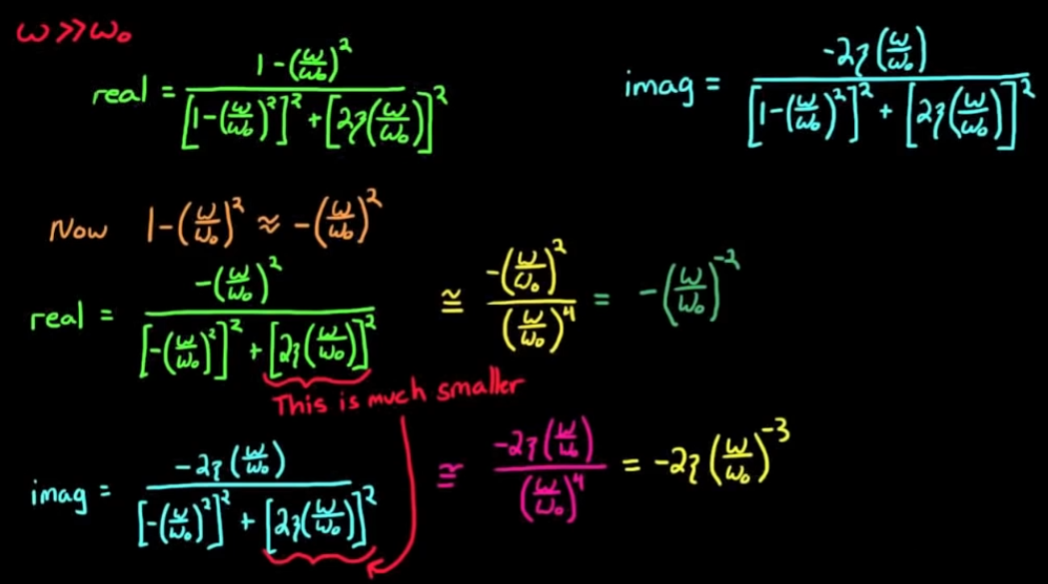 ω>>ω₀
real = (1-(ω/ω₀)²) / ([1-(ω/ω₀)²]² + [2ζ(ω/ω₀)]²)
imag = (-2ζ(ω/ω₀)) / ([1-(ω/ω₀)²]² + [2ζ(ω/ω₀)]²)
Now 1-(ω/ω₀)² ≈ -(ω/ω₀)²
real = (-(ω/ω₀)²) / ([-(ω/ω₀)²]² + [2ζ(ω/ω₀)]²) ≅ (-(ω/ω₀)²) / ((ω/ω₀)⁴) = -(ω/ω₀)⁻²
This is much smaller
imag = (-2ζ(ω/ω₀)) / ([-(ω/ω₀)²]² + [2ζ(ω/ω₀)]²) ≅ (-2ζ(ω/ω₀)) / ((ω/ω₀)⁴) = -2ζ(ω/ω₀)⁻³